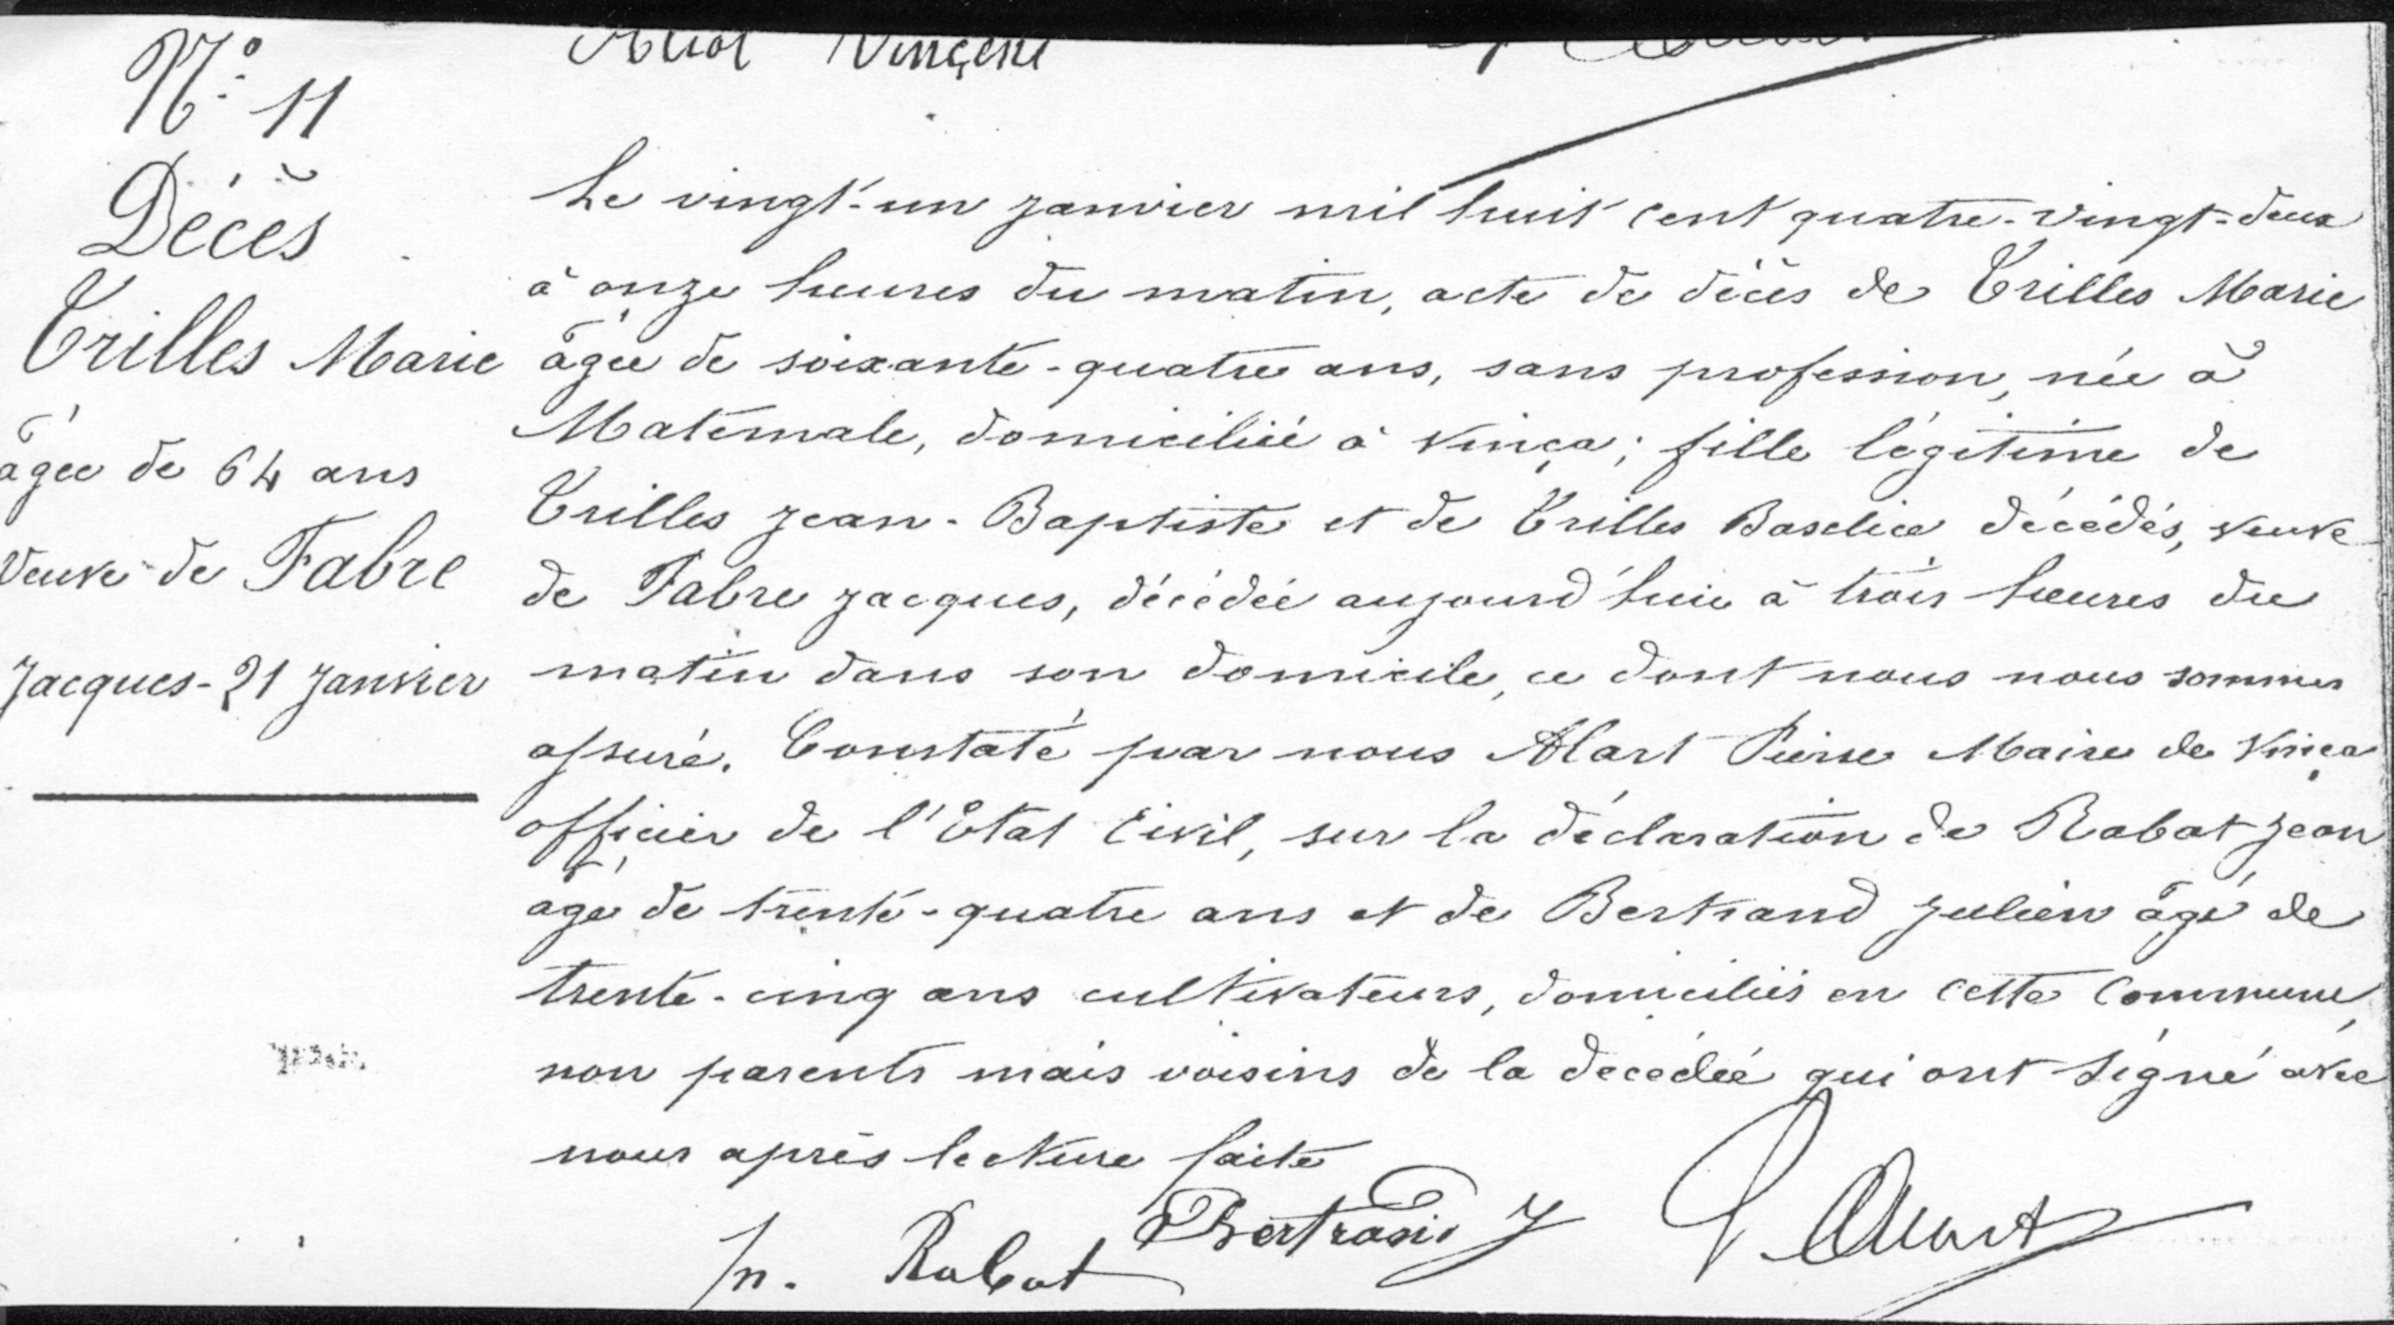 Vincent
N° 11
Décès
Trilles Marie
âgée de 64 ans
Veuve de Fabre
Jacques - 21 Janvier
Le vingt-un janvier mil huit cent quatre-vingt-deux
à onze heures du matin, acte de décès de Trilles Marie
âgée de soixante-quatre ans, sans profession, née à
Matemale, domiciliée à Vinça; fille légitime de
Trilles Jean-Baptiste et de Trilles Baselice décédés, veuve
de Fabre Jacques, décédée aujourd'hui à trois heures du
matin dans son domicile, ce dont nous nous sommes
assuré. Constaté par nous Alart Pierre Maire de Vinça
officier de l'Etat Civil, sur la déclaration de Rabat Jean
âgé de trente-quatre ans et de Bertrand Julien âgé de
trente-cinq ans cultivateurs, domiciliés en cette Commune,
non parents mais voisins de la decédée qui ont signé avec
nous après lecture faite
Jn. Rabat Bertrand J P. Alart